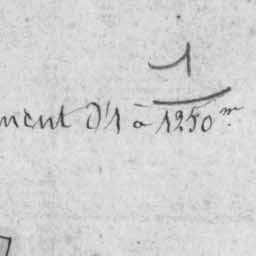 ment d'1 à 1/1250^m.